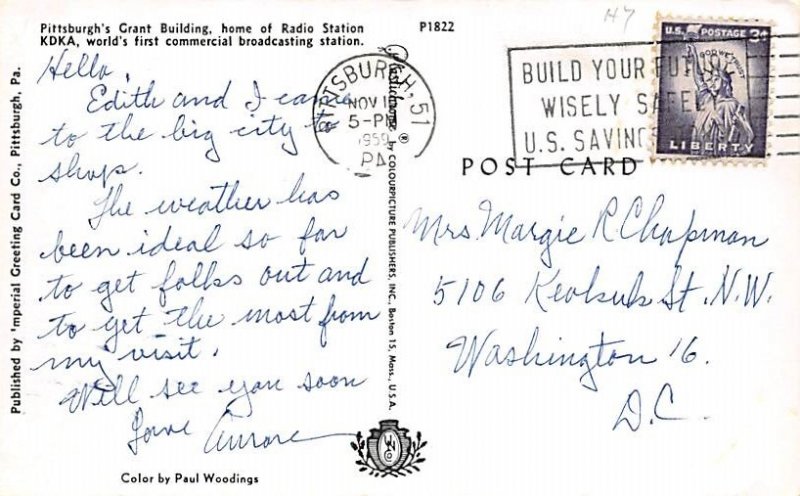 Pittsburgh's Grant Building, home of Radio Station
KDKA, world's first commercial broadcasting station.
P1822
Hello,
Edith and I came
to the big city to
shop.
The weather has
been ideal so far
to get folks out and
to get the most from
my visit.
Will see you soon
Love Aurore
Color by Paul Woodings
Published by Imperial Greeting Card Co., Pittsburgh, Pa.
Plastichrome ® by COLOURPICTURE PUBLISHERS, INC., Boston 15, Mass., U.S.A.
PITTSBURGH, 51
NOV
5-PM
1959
PA
BUILD YOUR FUTURE
WISELY SAFELY
U.S. SAVINGS
U.S. POSTAGE 3¢
IN GOD WE TRUST
LIBERTY
POST CARD
Mrs Margie R Chapman
5106 Keokuk St. N.W.
Washington 16.
D.C.